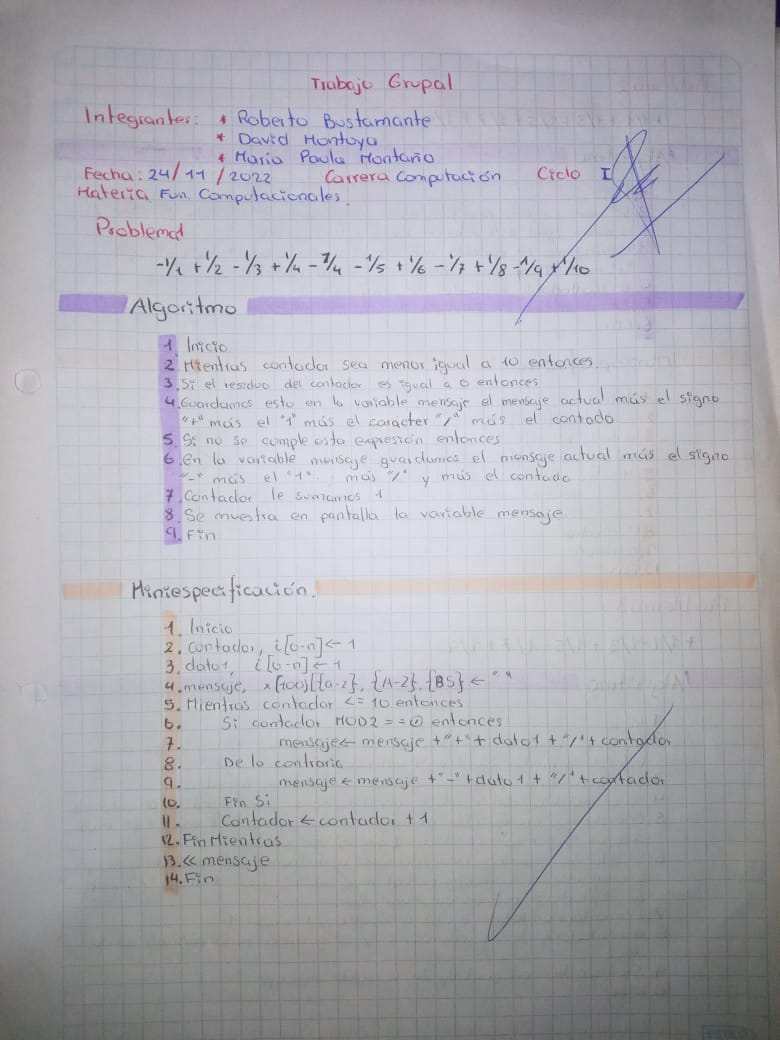 Trabajo Grupal
Integrantes: * Roberto Bustamante
* David Montoya
* María Paula Montaño
Fecha: 24/11/2022 Carrera Computación Ciclo I
Materia. Fun. Computacionales.
Problema1
-1/1 + 1/2 - 1/3 + 1/4 - 1/4 - 1/5 + 1/6 - 1/7 + 1/8 - 1/9 + 1/10
Algoritmo
1. Inicio
2. Mientras contador sea menor igual a 10 entonces
3. Si el residuo del contador es igual a 0 entonces
4. Guardamos esto en la variable mensaje el mensaje actual más el signo
"+" más el "1" más el carácter "/" más el contado
5. Si no se cumple esta expresión entonces
6. en la variable mensaje guardamos el mensaje actual más el signo
"-" más el "1" más "/" y más el contado
7. Contador le sumamos 1
8. Se muestra en pantalla la variable mensaje
9. Fin
Miniespecificación.
1. Inicio
2. contador, i[0-n] ← 1
3. dato1, i[0-n] ← 1
4. mensaje, x(100)[{a-z}, {A-Z}, {BS} ← " "
5. Mientras contador <= 10 entonces
6. Si contador MOD2 == 0 entonces
7. mensaje ← mensaje + "+" + dato1 + "/" + contador
8. De lo contrario
9. mensaje ← mensaje + "-" + dato1 + "/" + contador
10. Fin Si
11. Contador ← contador + 1
12. Fin Mientras
13. << mensaje
14. Fin